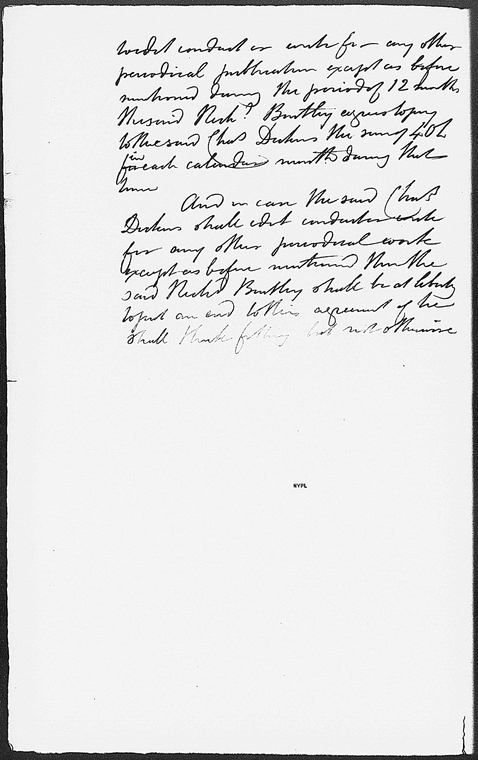 to edit conduct or write for any other
periodical publication except as before
mentioned during the period of 12 months
the said Richd. Bentley agrees to pay
to the said Chas Dickens the sum of 40£
in each calendar month during that
time
And in case the said Chas
Dickens shall edit conduct or write
for any other periodical work
except as before mentioned then the
said Richd Bentley shall be at liberty
to put an end to this agreement if he
shall think fitting but not otherwise
NYPL